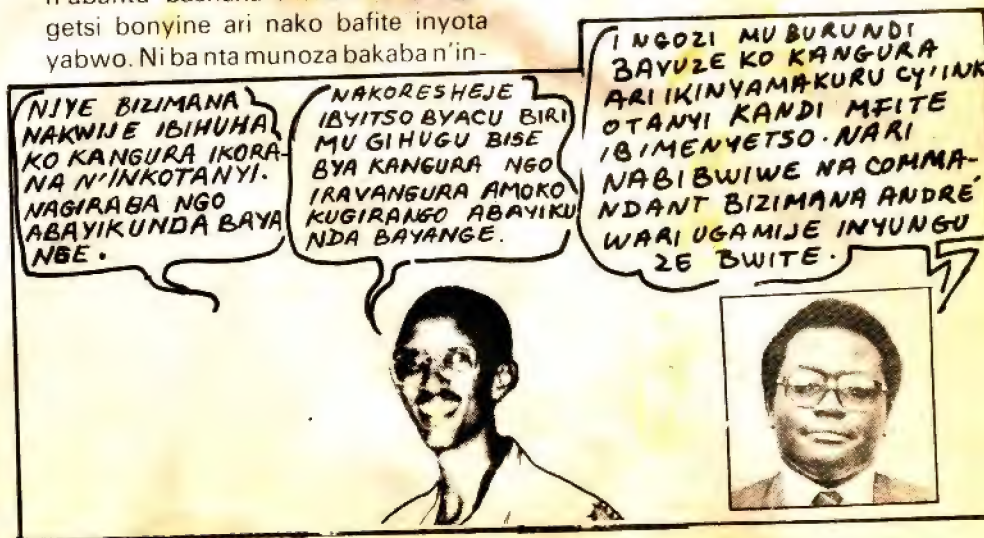 getsi bonyine ari nako bafite inyota
yabwo. Ni ba nta munoza bakaba n'in-
NJYE BIZIMANA
NAKWIJE IBIHUHA
KO KANGURA IKORA-
NA N'INKOTANYI.
NAGIRABA NGO
ABAYIKUNDA BAYA
NGE.
NAKORESHEJE
IBYITSO BYACU BIRI
MU GIHUGU BISE
BYA KANGURA NGO
IRAVANGURA AMOKO
KUGIRANGO ABAYIKU
NDA BAYANGE.
I NGOZI MU BURUNDI
BAVUZE KO KANGURA
ARI IKINYAMAKURU CY'INK
OTANYI KANDI MFITE
IBIMENYETSO. NARI
NABIBWIWE NA COMMA-
NDANT BIZIMANA ANDRÉ
WARI UGAMIJE INYUNGU
ZE BWITE.